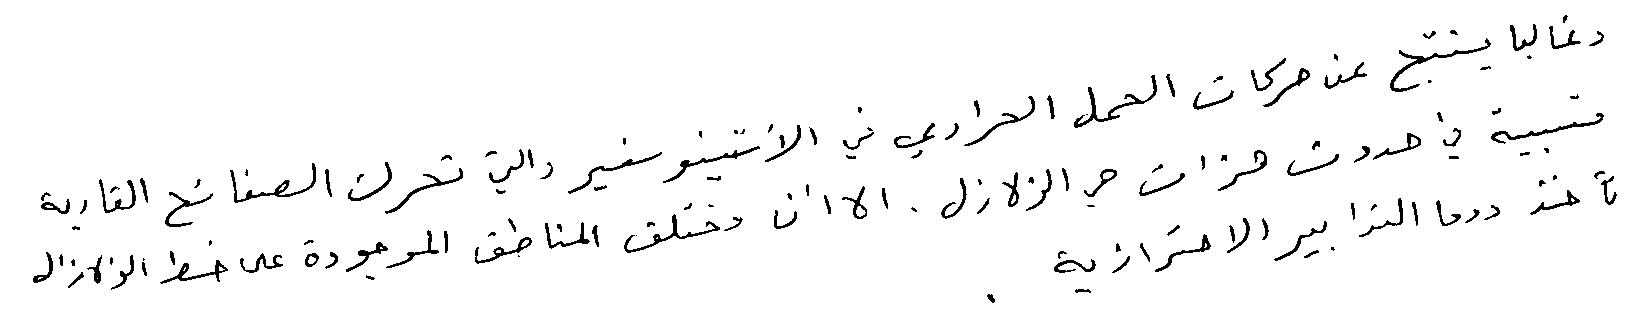 وغالبا ينتج عن حركات الحمل الحراري في الأستينوسفير والتي تحرك الصفائح القارية
متسببة في حدوث هزات هي الزلازل . الا أن مختلف المناطق الموجودة على خط الزلازل
تأخذ دوما التدابير الاحترازية .